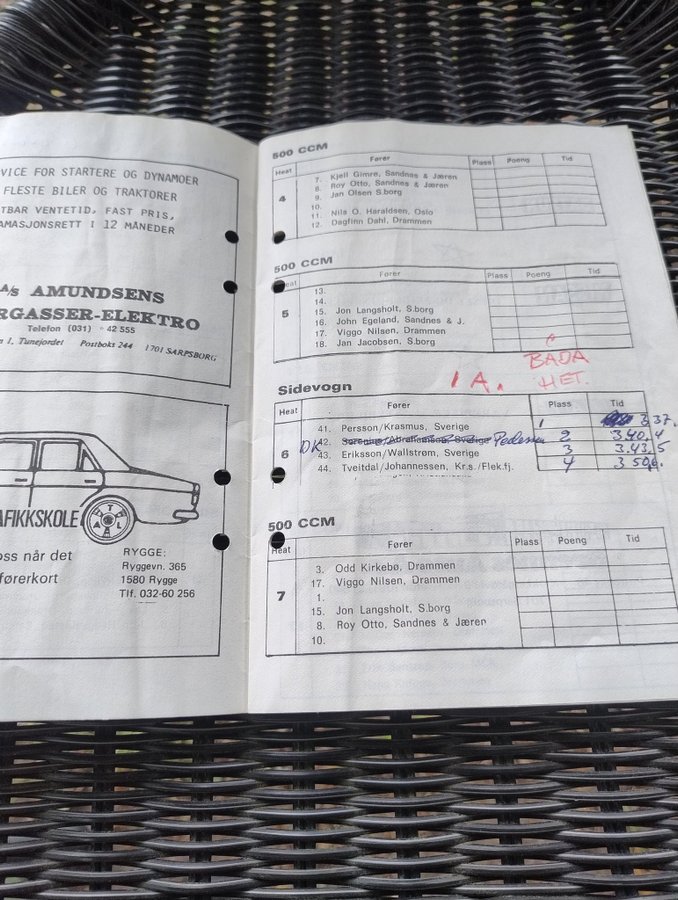 VICE FOR STARTERE OG DYNAMOER
FLESTE BILER OG TRAKTORER
TBAR VENTETID, FAST PRIS,
AMASJONSRETT I 12 MÅNEDER
A/s AMUNDSENS
RGASSER-ELEKTRO
Telefon (031) - 42 555
n 1, Tunejordet Postboks 244 1701 SARPSBORG
T
A L
AFIKKSKOLE
oss når det
førerkort
RYGGE:
Ryggevn. 365
1580 Rygge
Tlf. 032-60 256
500 CCM
Heat Fører Plass Poeng Tid
4
7. Kjell Gimre, Sandnes & Jæren
8. Roy Otto, Sandnes & Jæren
9. Jan Olsen S.borg
10.
11. Nils O. Haraldsen, Oslo
12. Dagfinn Dahl, Drammen
500 CCM
Heat Fører Plass Poeng Tid
5
13.
14.
15. Jon Langsholt, S.borg
16. John Egeland, Sandnes & J.
17. Viggo Nilsen, Drammen
18. Jan Jacobsen, S.borg
1 A. BADA
HET.
Sidevogn
Heat Fører Plass Tid
6
41. Persson/Krasmus, Sverige 1 3.37.
DK 42. Pedersen 2 3.40.4
43. Eriksson/Wallstrøm, Sverige 3 3.43.5
44. Tveitdal/Johannessen, Kr.s./Flek.fj. 4
500 CCM
Heat Fører Plass Poeng Tid
7
3. Odd Kirkebø, Drammen
17. Viggo Nilsen, Drammen
1.
15. Jon Langsholt, S.borg
8. Roy Otto, Sandnes & Jæren
10.